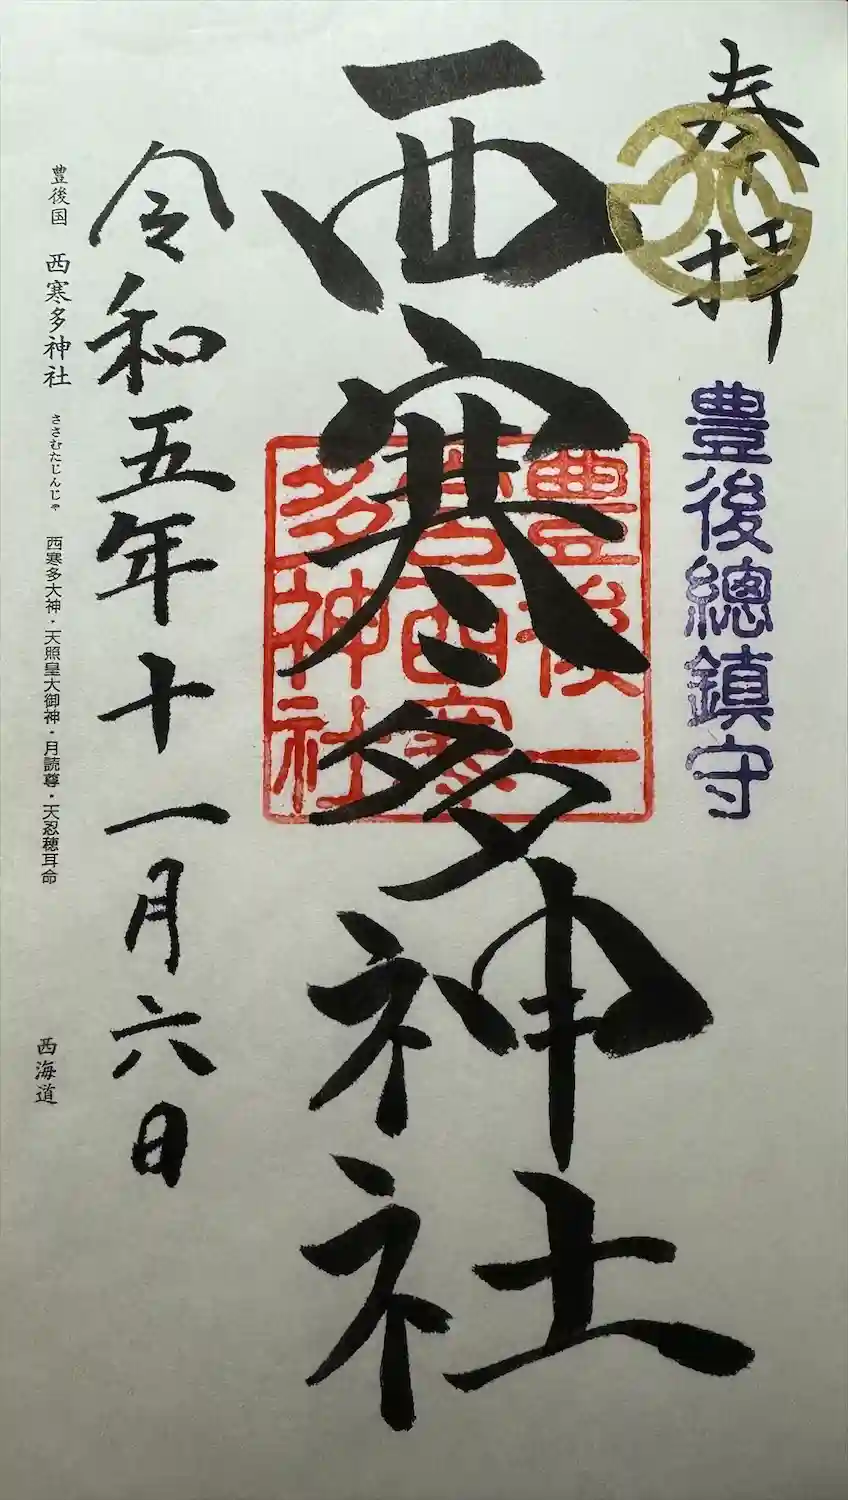 奉拝
豊後總鎮守
西寒多神社
豊後一
宮西寒
多神社
令和五年十一月六日
豊後国 西寒多神社 ささむたじんじゃ 西寒多大神・天照皇大御神・月読尊・天忍穂耳命 西海道